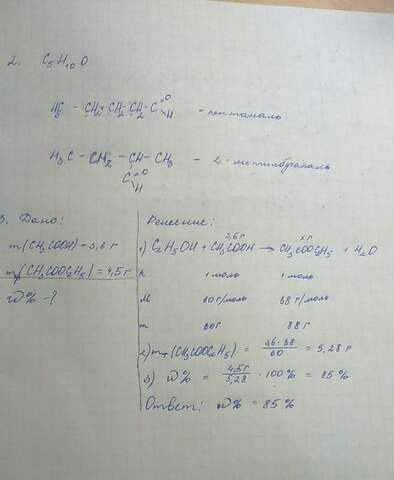 2. C5H10O
H3C - CH2 - CH2 - CH2 - C =O H - пентаналь
H3C - CH2 - CH - CH3 - 2-метилбутаналь
C =O H
3. Дано:
m(CH3COOH) = 3,6 г
mp(CH3COOC2H5) = 4,5 г
ω% - ?
Решение:
3,6 г x г
1) C2H5OH + CH3COOH → CH3COOC2H5 + H2O
n 1 моль 1 моль
M 60 г/моль 88 г/моль
m 60г 88 г
2) mт(CH3COOC2H5) = 3,6 · 88 / 60 = 5,28 г
3) ω% = 4,5г / 5,28 · 100% = 85%
Ответ: ω% = 85%